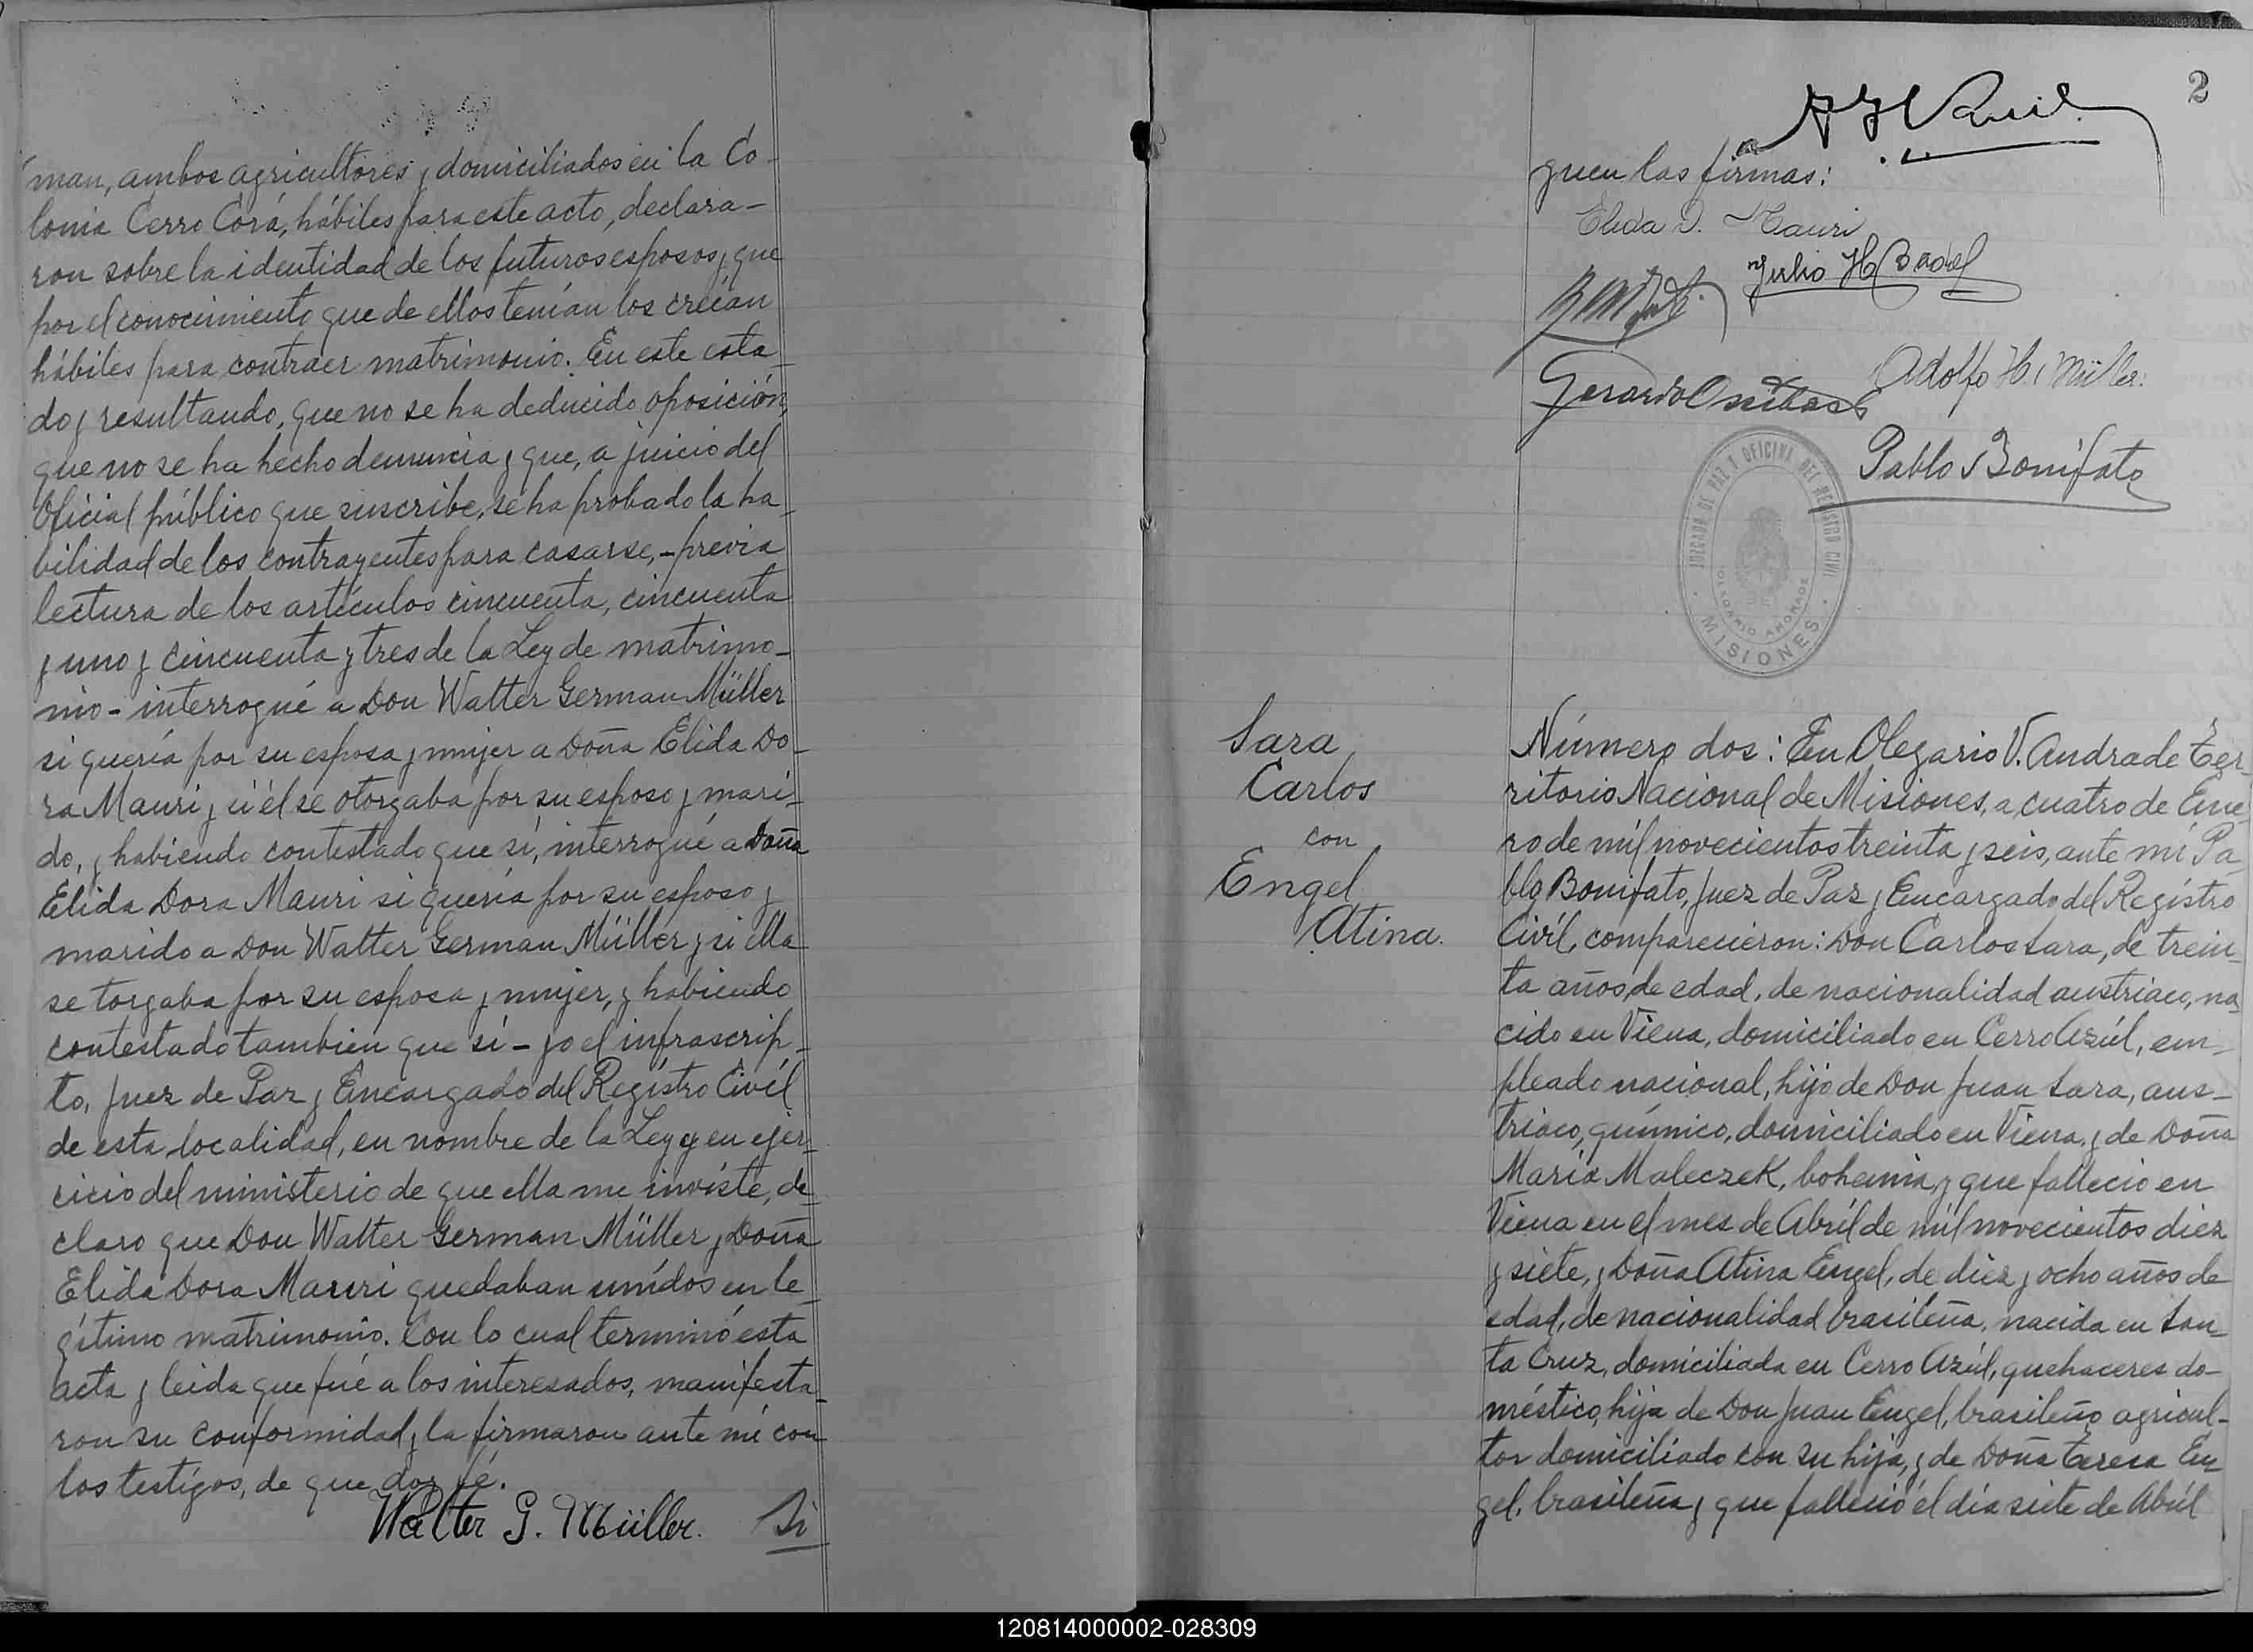 man, ambos agricultores y domiciliados en la Co-
lonia Cerro Corá, hábiles para este acto, declara-
ron sobre la identidad de los futuros esposos y que
por el conocimiento que de ellos tenían los creían
hábiles para contraer matrimonio. En este esta-
do y resultando, que no se ha deducido oposición,
que no se ha hecho denuncia y que, a juicio del
Oficial público que suscribe, se ha probado la ha-
bilidad de los contrayentes para casarse, - previa
lectura de los artículos cincuenta, cincuenta
y uno y cincuenta y tres de la Ley de matrimo-
nio - interrogué a Don Walter German Müller
si quería por su esposa y mujer a Doña Elida Do-
ra Mauri y si él se otorgaba por su esposo y mari-
do, y habiendo contestado que sí, interrogué a Doña
Elida Dora Mauri si quería por su esposo y
marido a Don Walter German Müller y si ella
se torgaba por su esposa y mujer, y habiendo
contestado tambien que sí - yo el infrascrip-
to, Juez de Paz y Encargado del Regístro Civíl
de esta localidad, en nombre de la Ley y en ejer-
cicio del ministerio de que ella me invíste, de-
claro que Don Walter German Müller y Doña
Elida Dora Mauri quedaban unídos en le-
gítimo matrimonio. Con lo cual terminó esta
acta y leida que fué a los interesados, manifesta-
ron su conformidad y la firmaron ante mí con
los testígos, de que doy fé.
Walter G. Müller. Si
2
guen las firmas:
Elida D. Mauri
Julio H. Badel
Adolfo H. Müller.
Gerardo
Pablo Bonifato
JUZGADO DE PAZ Y OFICINA DEL REGISTRO CIVIL
OLEGARIO ANDRADE
MISIONES
Sara
Carlos
con
Engel
Atina.
Número dos: En Olegario V. Andrade Ter-
ritorio Nacional de Misiones, a cuatro de Ene-
ro de mil novecientos treinta y seis, ante mí Pa-
blo Bonifato, Juez de Paz y Encargado del Regístro
Civíl, comparecieron: Don Carlos Sara, de trein-
ta años de edad, de nacionalidad austriaco, na-
cido en Viena, domiciliado en Cerro Azúl, em-
pleado nacional, hijo de Don Juan Sara, aus-
triaco, químico, domiciliado en Viena, y de Doña
María Maleczek, bohemia, y que fallecio en
Viena en el mes de Abríl de mil novecientos diez
y siete, y Doña Atina Engel, de diez y ocho años de
edad, de nacionalidad brasileña, nacida en San-
ta Cruz, domiciliada en Cerro Azúl, quehaceres do-
méstico, hija de Don Juan Engel, brasileño agricul-
tor domiciliado con su hija, y de Doña Teresa En-
gel, brasileña y que falleció el día siete de Abríl
120814000002-028309